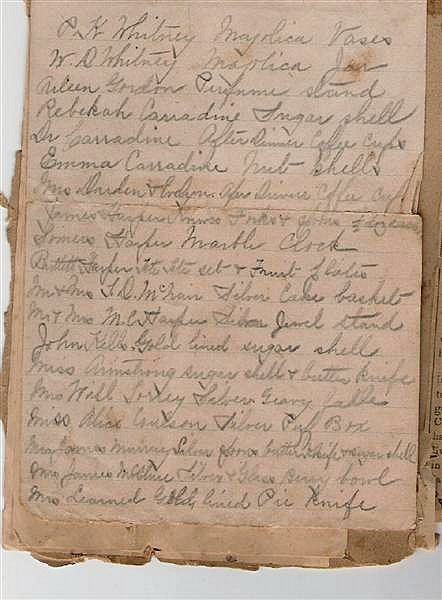 P. K Whitney Majolica Vases
W. D Whitney Majolica Jar
Aileen Gordon Perfume stand
Rebekah Carradine Sugar shell
Dr Carradine After Dinner Coffee Cups
Emma Carradine Nut Shells
Mrs Darden & After Dinner Coffee Cup
James Harper Knives Forks & Spoons
Somers Harper Marble Clock
Harper Tete Tete set & Fruit Plates
Mr & Mrs McNair Silver Cake basket
Mr & Mrs M. C. Harper Silver Jewel stand
John Kells Gold lined sugar shell
Miss Armstrong sugar shell & butter knife
Mrs Will Silver Gravy Ladle
Miss Alice Coulson Silver Puff Box
Mrs James Murray Silver Spoons butter knife & sugar shell
Mrs James McClure Silver & Glass Berry bowl
Mrs Learned Gold lined Pie Knife